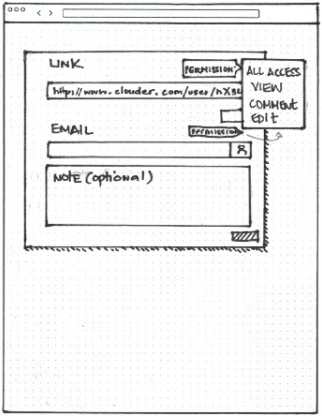 LINK
PERMISSION
ALL ACCESS
VIEW
COMMENT
EDIT
https://www.clouder.com/user/nX9L
EMAIL
PERMISSION
NOTE (optional)